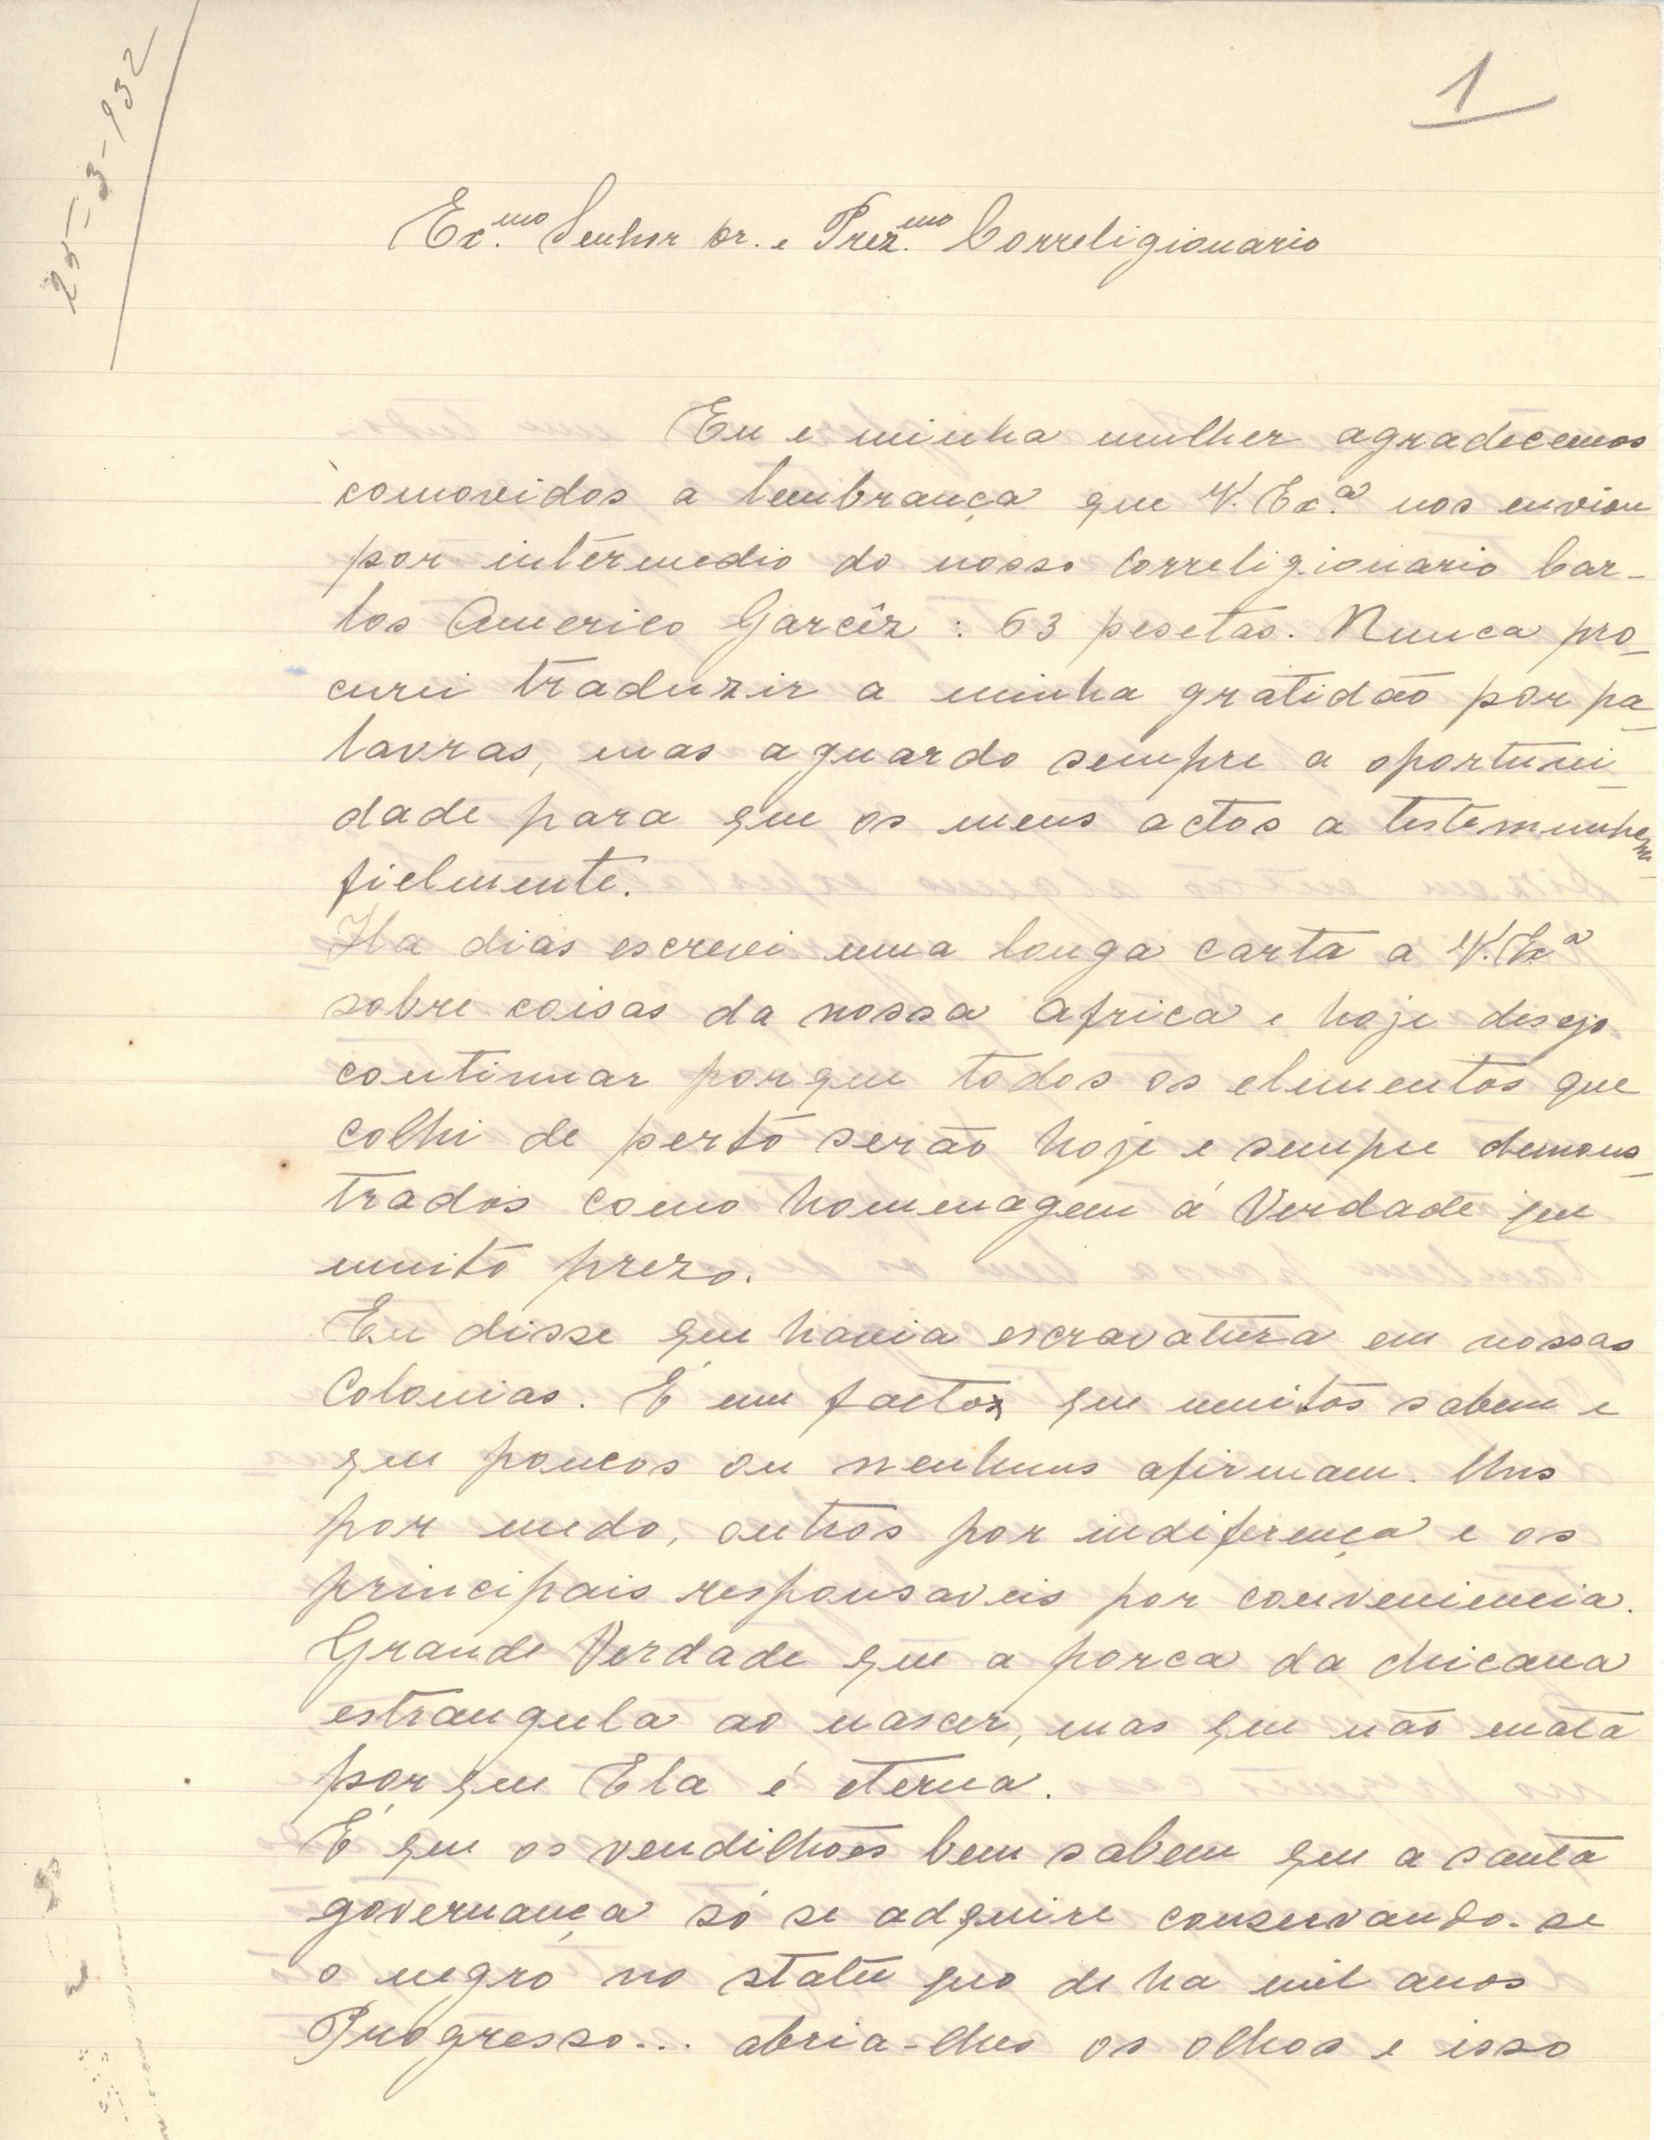 1
25-3-932
Ex.mo Senhor Dr. e Prez.mo Correligionario
Eu e minha mulher agradecemos
comovidos a lembrança que V. Ex.ª nos enviou
por intermedio do nosso correligionario Car-
los Americo Garcêz : 63 pesetas. Nunca pro-
curei traduzir a minha gratidão por pa-
lavras, mas aguardo sempre a oportuni-
dade para que os meus actos a testemunhem
fielmente.
Ha dias escrevi uma longa carta a V. Ex.ª
sobre coisas da nossa Africa e hoje desejo
continuar porque todos os elementos que
colhi de perto serão hoje e sempre demons-
trados como homenagem á Verdade que
muito prezo.
Eu disse que havia escravatura em nossas
Colonias. É um facto que muitos sabem e
que poucos ou nenhuns afirmam. Uns
por medo, outros por indiferença e os
principais responsaveis por conveniencia.
Grande Verdade que a porca da chicana
estrangula ao nascer, mas que não mata
porque Ela é eterna.
É que os vendilhões bem sabem que a santa
governança só se adquire conservando-se
o negro no statu quo de ha mil anos
Progresso... abria-lhes os olhos e isso